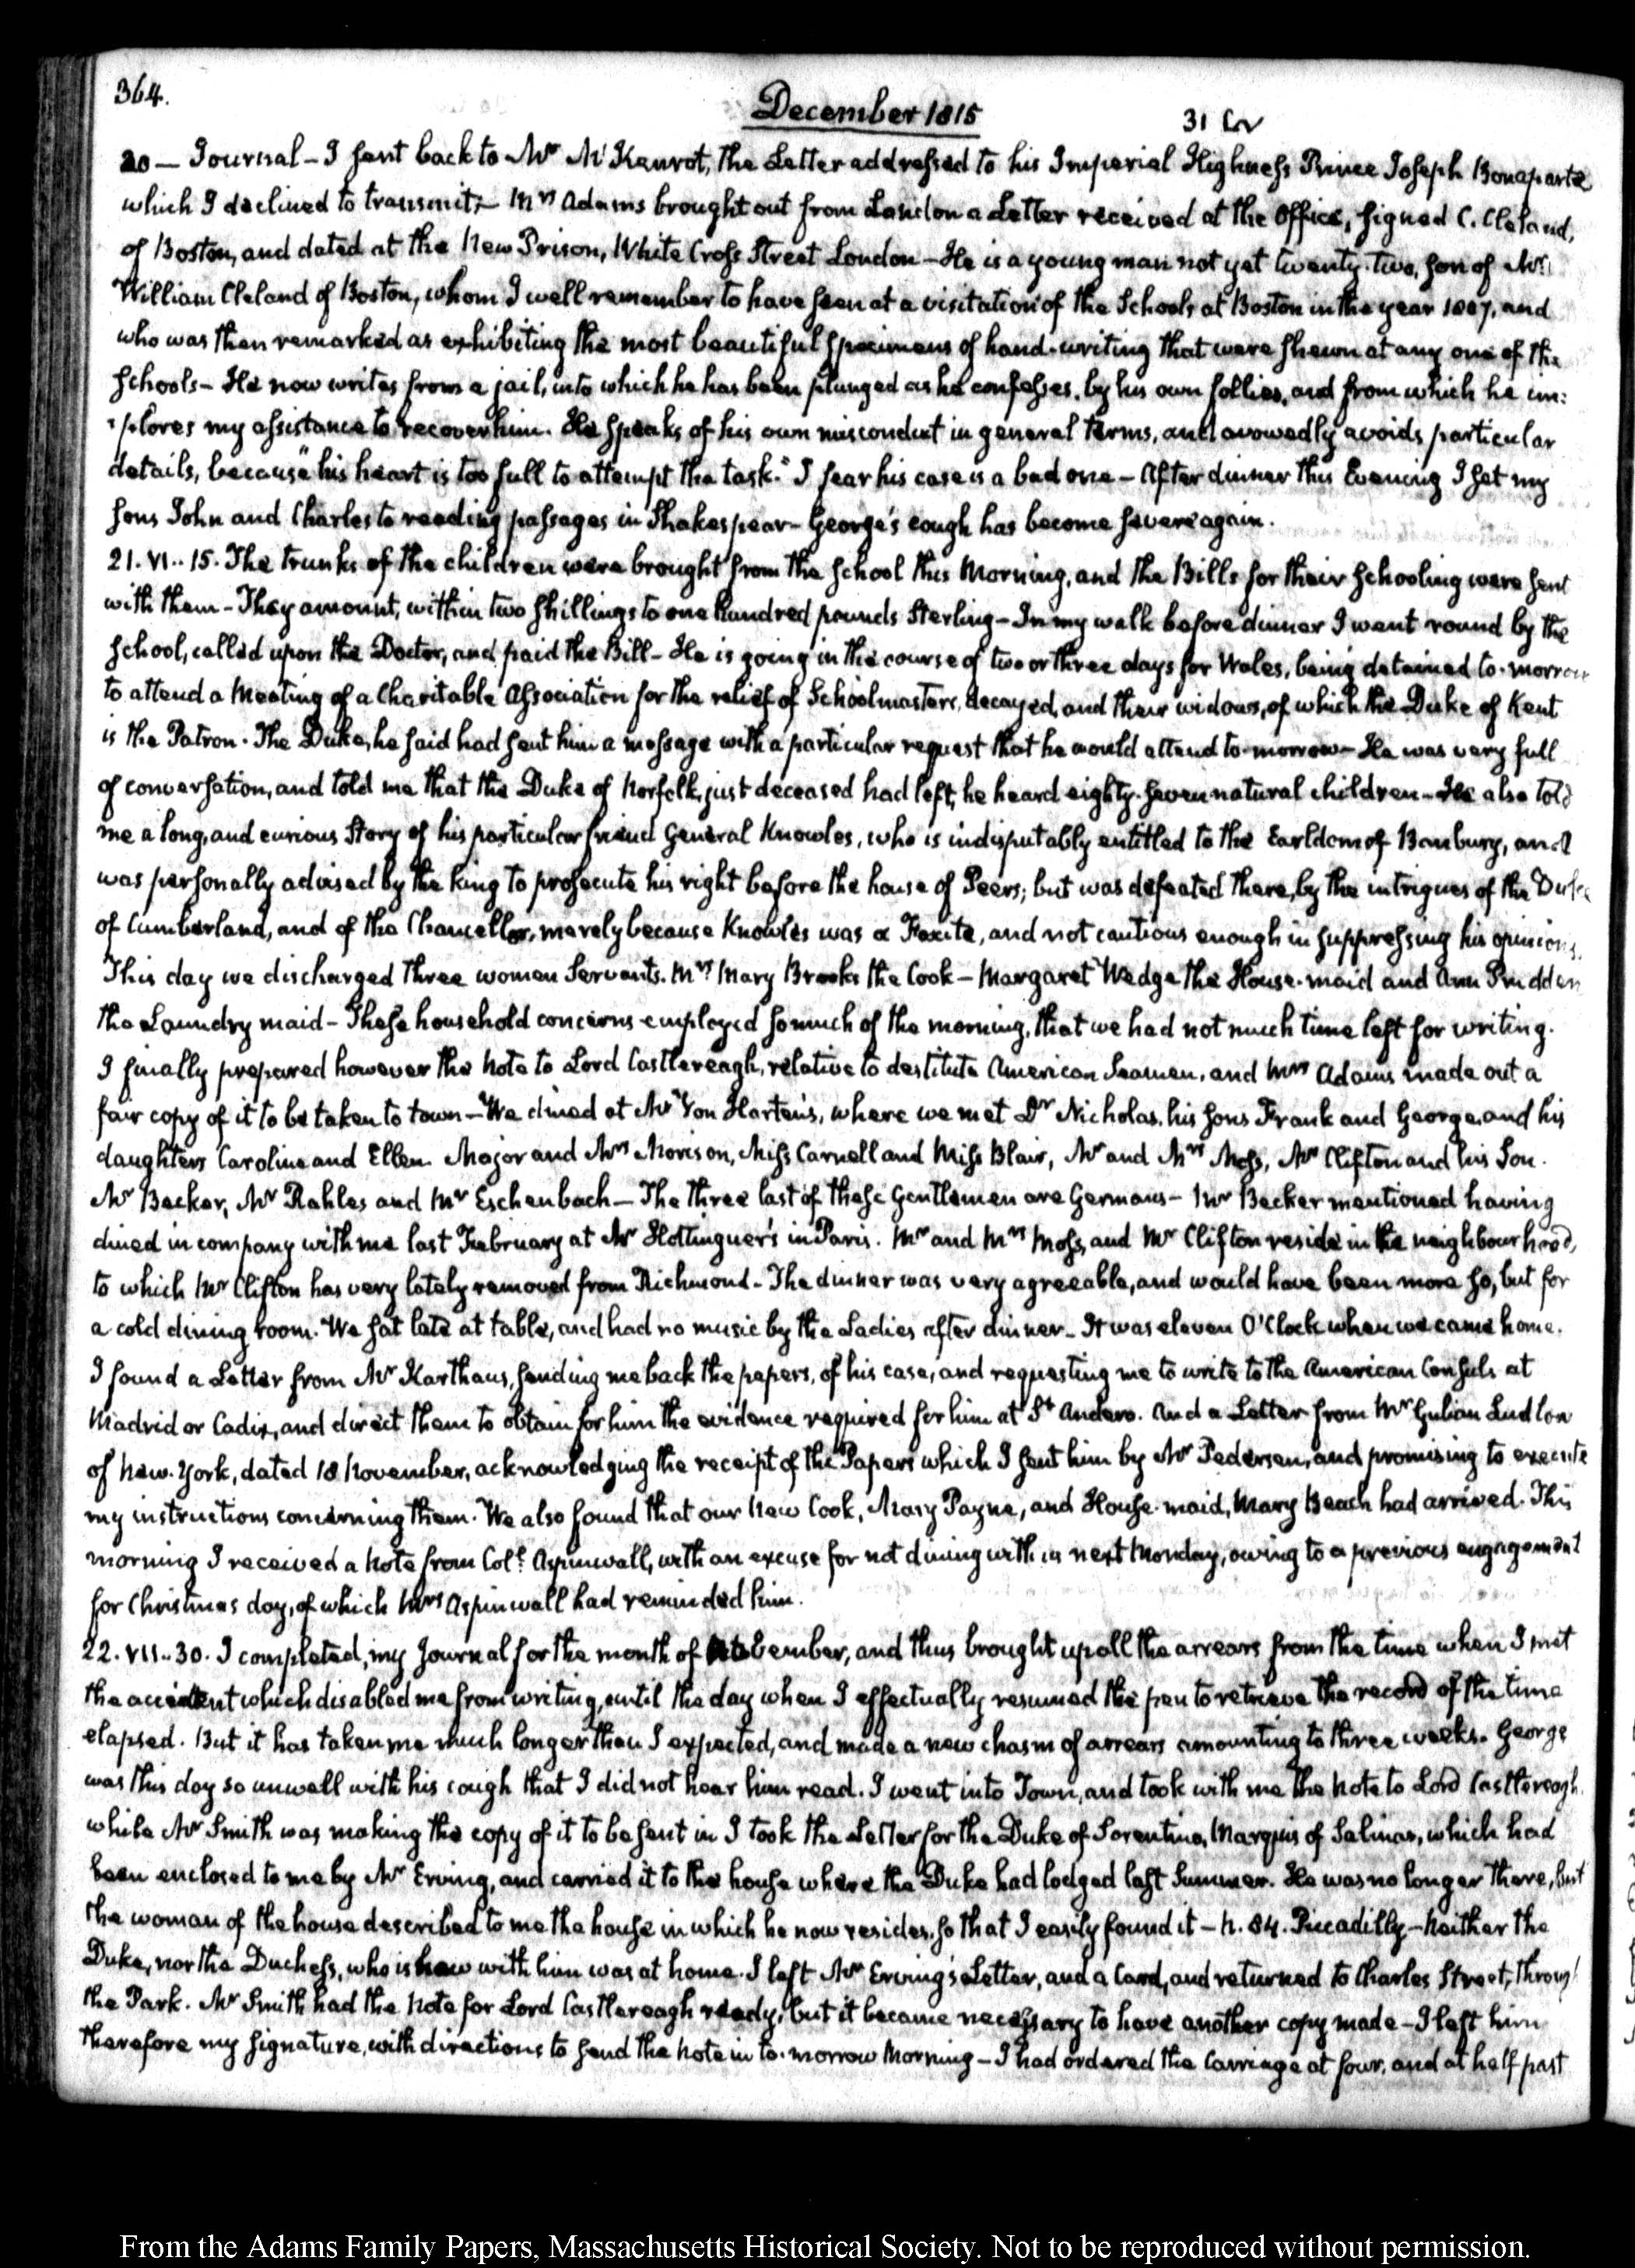 364.
December 1815
31
20 — Journal – I sent back to Mr the Letter addressed to his Imperial Highness Prince Joseph Bonaparte
which I declined to transmit – Mrs Adams brought out from London a Letter received at the Office, signed C. Cleland,
of Boston, and dated at the New Prison, White Cross Street London – He is a young man not yet twenty-two, son of Mr
William Cleland of Boston, whom I well remember to have seen at a visitation of the Schools at Boston in the year 1807, and
who was then remarked as exhibiting the most beautiful specimens of hand-writing that were shewn at any one of the
schools – He now writes from a jail, into which he has been plunged as he confesses, by his own follies, and from which he im:
:plores my assistance to recover him. He speaks of his own misconduct in general terms, and avowedly avoids particular
details, because "his heart is too full to attempt the task." I fear his case is a bad one – After dinner this Evening I set my
sons John and Charles to reading passages in Shakespear – George's cough has become severe again.
21. VI..15. The trunks of the children were brought from the school this Morning, and the Bills for their schooling were sent
with them – They amount, within two shillings to one hundred pounds Sterling – In my walk before dinner I went round by the
school, called upon the Doctor, and paid the Bill – He is going in the course of two or three days for Wales, being detained to-morrow
to attend a Meeting of a Charitable Association for the relief of Schoolmasters, decayed, and their widows, of which the Duke of Kent
is the Patron. The Duke, he said had sent him a message with a particular request that he would attend to-morrow – He was very full
of conversation, and told me that the Duke of Norfolk, just deceased had left, he heard eighty-seven natural children – He also told
me a long, and curious Story of his particular friend General Knowles, who is indisputably entitled to the Earldom of Banbury, and
was personally advised by the king to prosecute his right before the house of Peers; but was defeated there, by the intrigues of the Duke
of Cumberland, and of the Chancellor, merely because Knowles was a Foxite, and not cautious enough in suppressing his opinions.
This day we discharged three women Servants. Mrs Mary Brooks the Cook – Margaret Wedge the House-maid and Ann Prudden
the Laundry maid – These household concerns employed so much of the morning, that we had not much time left for writing.
I finally prepared however the Note to Lord Castlereagh, relative to destitute American Seamen, and Mrs Adams made out a
fair copy of it to be taken to town – We dined at Mr Von Harten's, where we met Dr Nicholas, his sons Frank and George, and his
daughters Caroline and Ellen. Major and Mrs Morison, Miss Carnell and Miss Blair, Mr and Mrs Moss, Mr Clifton and his Son.
Mr Becker, Mr Rahles and Mr Eschenbach – The three last of these Gentlemen are Germans – Mr Becker mentioned having
dined in company with me last February at Mr Hottinguer's in Paris. Mr and Mrs Moss, and Mr Clifton reside in the neighbourhood,
to which Mr Clifton has very lately removed from Richmond – The dinner was very agreeable, and would have been more so, but for
a cold dining room. We sat late at table, and had no music by the Ladies after dinner – It was eleven O'Clock when we came home.
I found a Letter from Mr Karthaus, sending me back the papers, of his case, and requesting me to write to the American Consuls at
Madrid or Cadiz, and direct them to obtain for him the evidence required for him at St Andero. And a Letter from Mr Gulian Ludlow
of New-York, dated 18 November, acknowledging the receipt of the Papers which I sent him by Mr Pedersen, and promising to execute
my instructions concerning them. We also found that our New Cook, Mary Payne, and House-maid, Mary Beach had arrived. This
morning I received a Note from Coll. Aspinwall, with an excuse for not dining with us next Monday, owing to a previous engagement
for Christmas day, of which Mrs Aspinwall had reminded him.
22. VII..30. I completed, my Journal for the month of November, and thus brought up all the arrears from the time when I met
the accident which disabled me from writing, until the day when I effectually resumed the pen to retrieve the record of the time
elapsed. But it has taken me much longer than I expected, and made a new chasm of arrears amounting to three weeks. George
was this day so unwell with his cough that I did not hear him read. I went into Town, and took with me the Note to Lord Castlereagh.
while Mr Smith was making the copy of it to be sent in I took the Letter for the Duke of Sorentino, Marquis of Salinas, which had
been enclosed to me by Mr Erving, and carried it to the house where the Duke had lodged last Summer. He was no longer there, but
the woman of the house described to me the house in which he now resides, so that I easily found it – N. 84. Piccadilly – Neither the
Duke, nor the Duchess, who is now with him was at home. I left Mr Erving's Letter, and a Card, and returned to Charles Street, through
the Park. Mr Smith had the Note for Lord Castlereagh ready, but it became necessary to have another copy made – I left him
therefore my signature, with directions to send the Note in to-morrow Morning – I had ordered the Carriage at four, and at half past
From the Adams Family Papers, Massachusetts Historical Society. Not to be reproduced without permission.